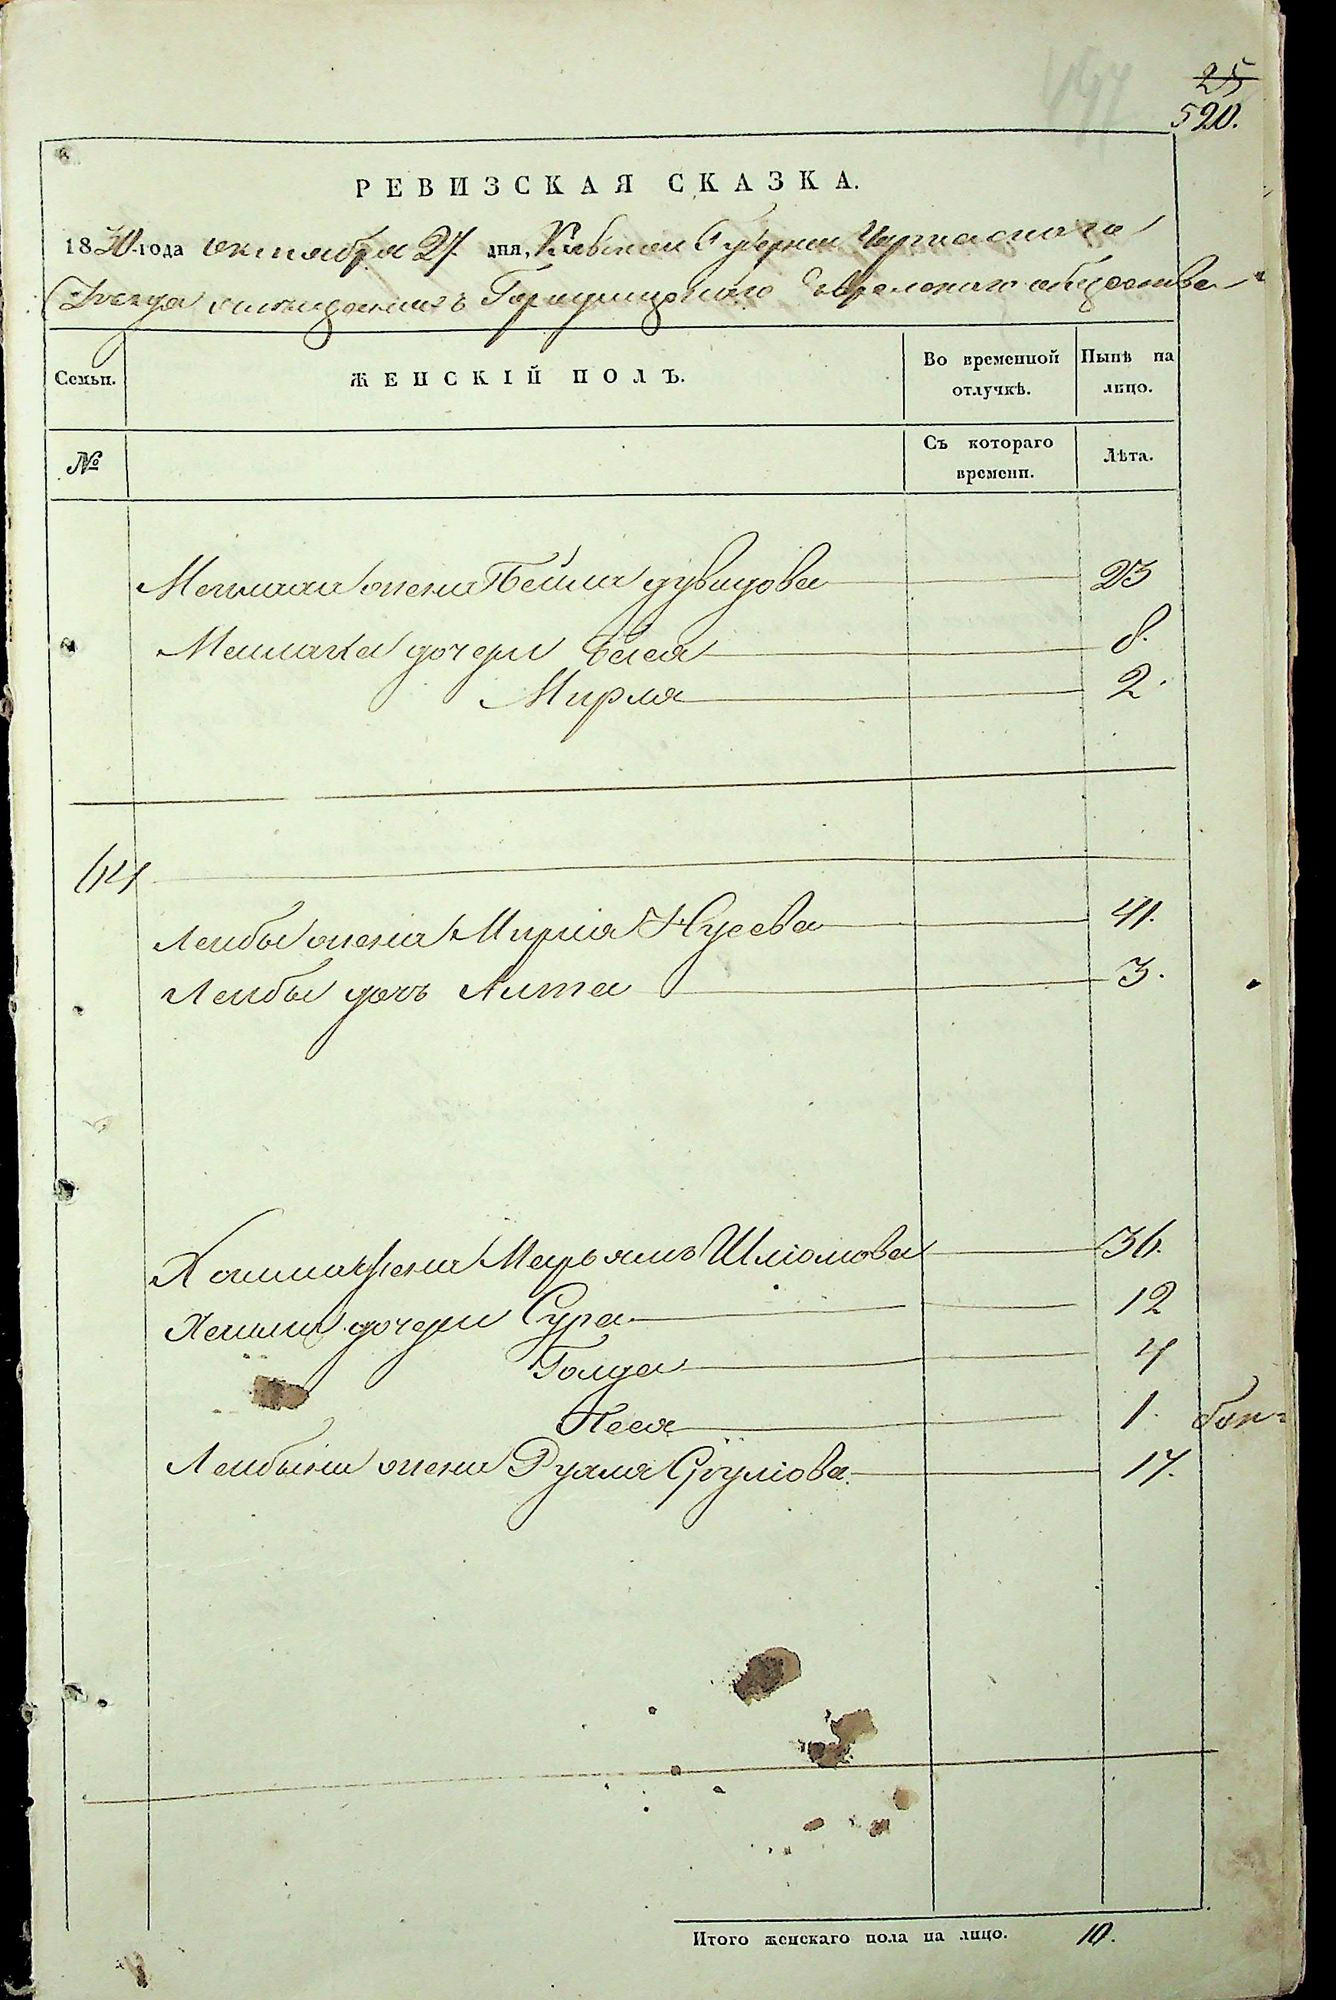 25
520.
РЕВИЗСКАЯ СКАЗКА.
1830 года октября 27 дня, Киевской Губернии Черкаского
Уезда Городищского Еврейского общества
Семьи.
ЖЕНСКІЙ ПОЛЪ.
Во временной отлучкѣ.
Нынѣ на лицо.
№
Съ котораго времени.
Лѣта.
жена Бейла дувидова 23
дочери Бася 8.
Мирля 2.
64
Лейбы жена Мирля Нусева 41.
Лейбы дочь Алта 3.
жена Марьямъ Шліомова 36.
дочери Сура 12
Голда 4
Песя 1.
жена Рухля Сруліова 17.
Итого женскаго пола на лицо. 10.